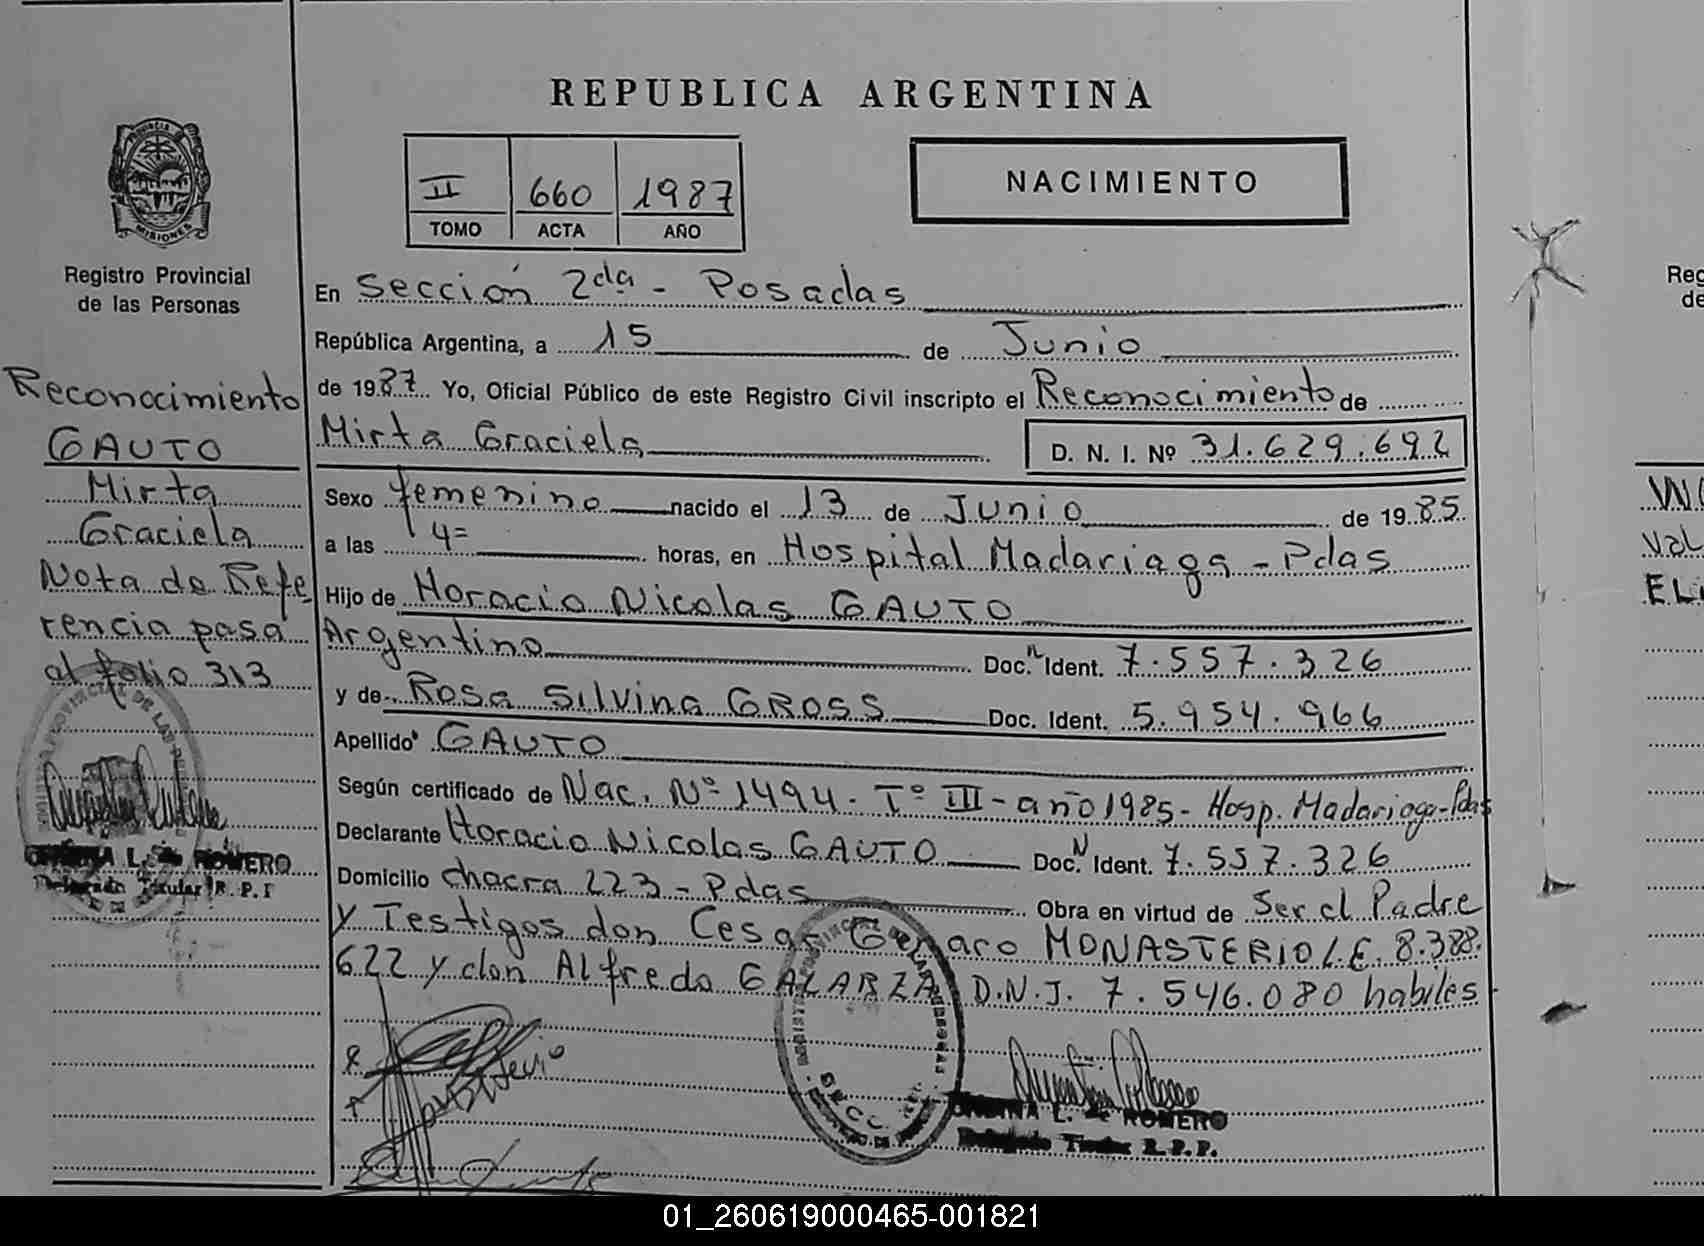 REPUBLICA ARGENTINA
PROVINCIA DE
MISIONES
Registro Provincial
de las Personas
II 660 1987
TOMO ACTA AÑO
NACIMIENTO
Reconocimiento
GAUTO
Mirta
Graciela
Nota de Refe
rencia pasa
al folio 313
L. de ROMERO
Titular R.P.P
En Sección 2da - Posadas
República Argentina, a 15 de Junio
de 1987. Yo, Oficial Público de este Registro Civil inscripto el Reconocimiento de
Mirta Graciela D. N. I. Nº 31.629.692
Sexo femenino nacido el 13 de Junio de 1985
a las 4= horas, en Hospital Madariaga - Pdas
Hijo de Horacio Nicolas GAUTO
Argentino Doc. N Ident. 7.557.326
y de Rosa Silvina GROSS Doc. Ident. 5.954.966
Apellido GAUTO
Según certificado de Nac. Nº 1494. Tº III - año 1985 - Hosp. Madariaga - Pdas
Declarante Horacio Nicolas GAUTO Doc. N Ident. 7.557.326
Domicilio chacra 223 - Pdas Obra en virtud de Ser el Padre
y Testigos don Cesar Genaro MONASTERIO L.E. 8.388.
622 y don Alfredo GALARZA D.N.I. 7.546.080 habiles
L. de ROMERO
Titular R.P.P.
Reg
de
01_260619000465-001821